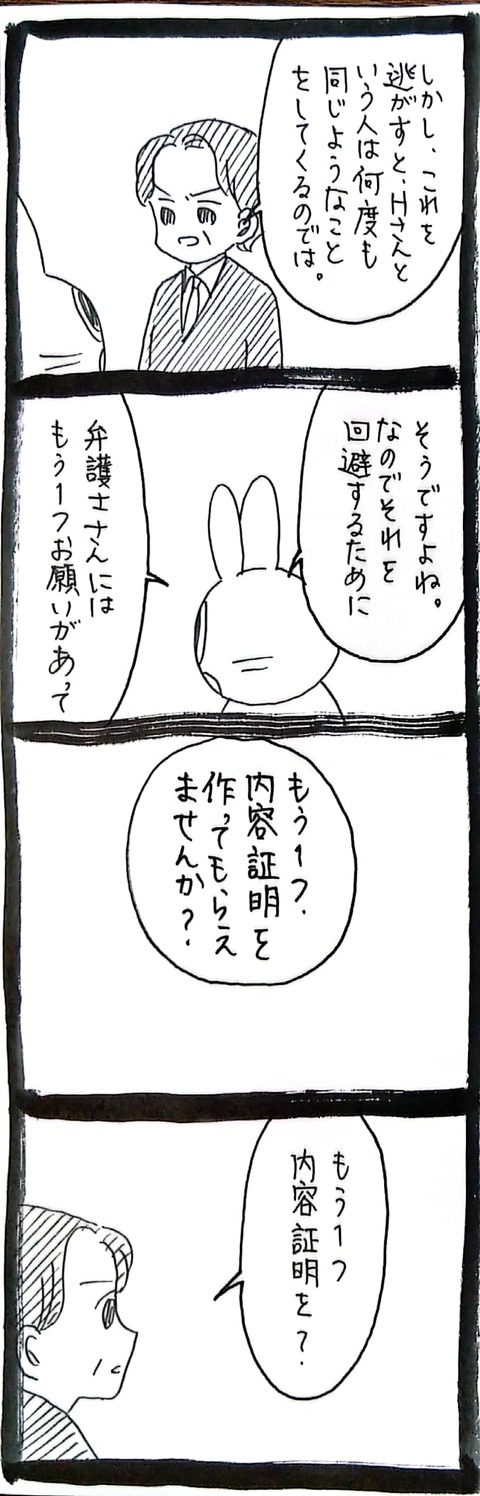 しかし、これを
逃がすと、Hさんと
いう人は何度も
同じようなこと
をしてくるのでは。
そうですよね。
なのでそれを
回避するために
弁護士さんには
もう1つお願いがあって
もう1つ、
内容証明を
作ってもらえ
ませんか?
もう1つ
内容証明を?